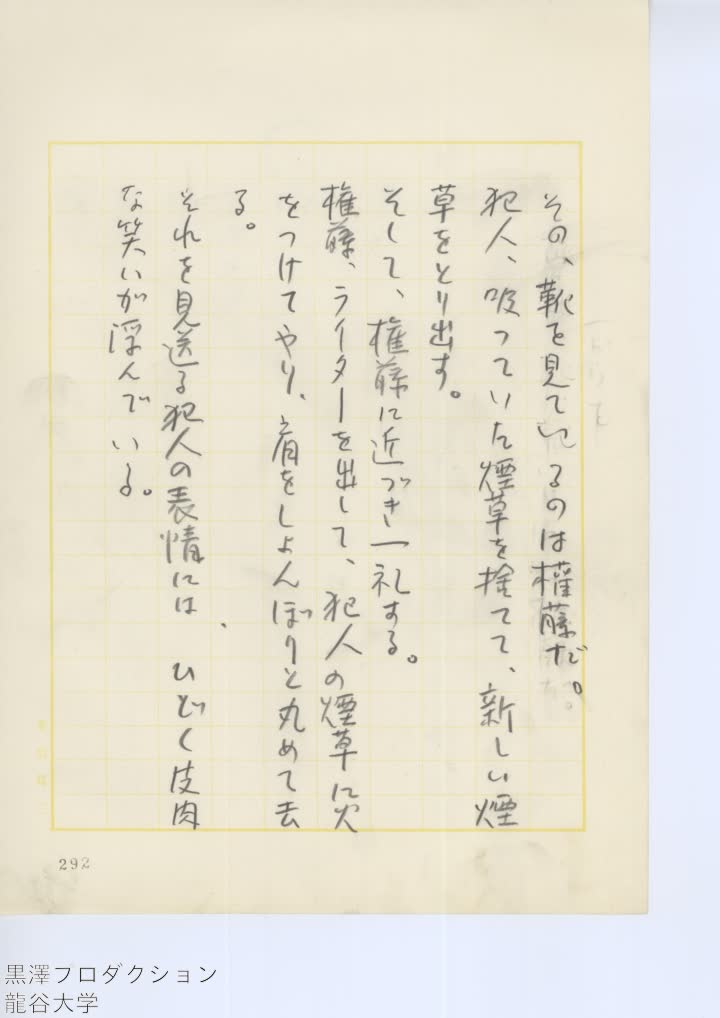 その、靴を見ているのは権藤だ。
犯人、吸っていた煙草を捨てて、新しい煙
草をとり出す。
そして、権藤に近づき一礼する。
権藤、ライターを出して、犯人の煙草に火
をつけてやり、肩をしょんぼりと丸めて去
る。
それを見送る犯人の表情には、ひどく皮肉
な笑いが浮んでいる。
292
黒澤プロダクション
龍谷大学